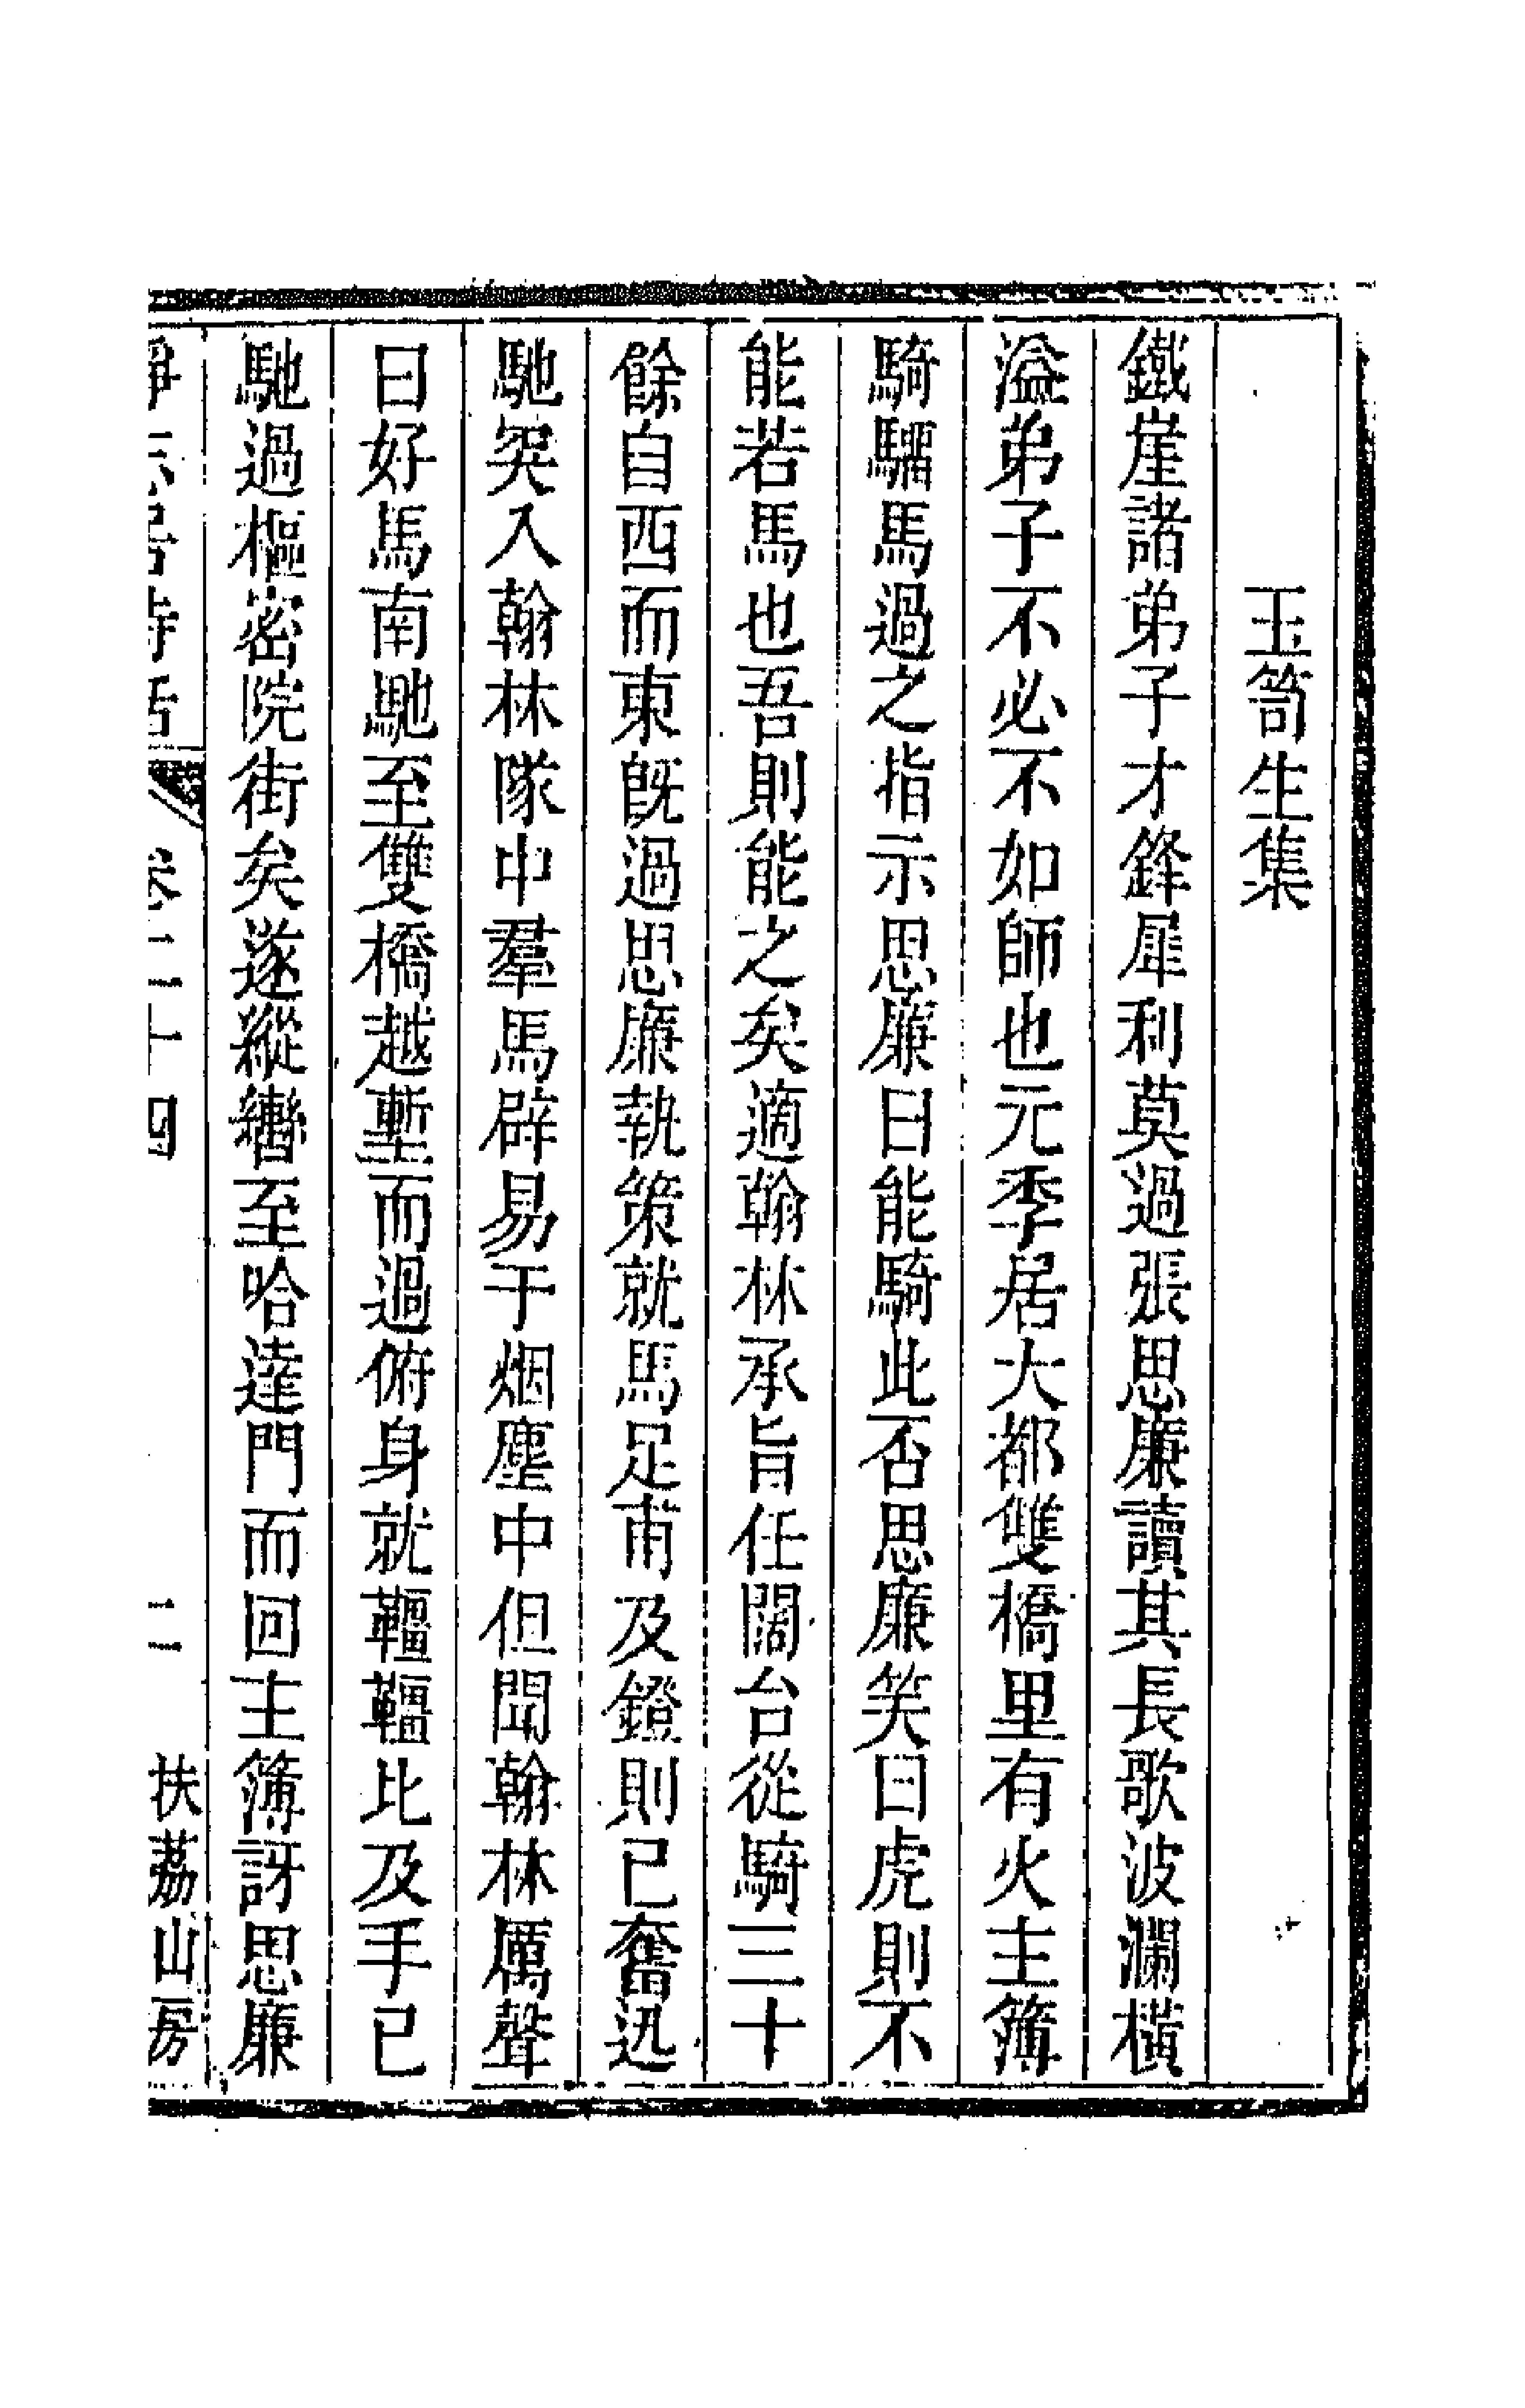 玉笥生集
鐵崖諸弟子才鋒犀利莫過張思廉讀其長歌波瀾橫
溢弟子不必不如師也元季居大都雙橋里有火主簿
騎騮馬過之指示思廉曰能騎此否思廉笑曰虎則不
能若馬也吾則能之矣適翰林承旨任闊台從騎三十
餘自西而東旣過思廉執策就馬足甫及鐙則已奮迅
馳突入翰林隊中羣馬辟易于烟塵中但聞翰林厲聲
曰好馬南馳至雙橋越塹而過俯身就韁韁比及手已
馳過樞密院街矣遂縱轡至哈達門而回主簿訝思廉
靜志居詩話 卷二十四 二 扶荔山房